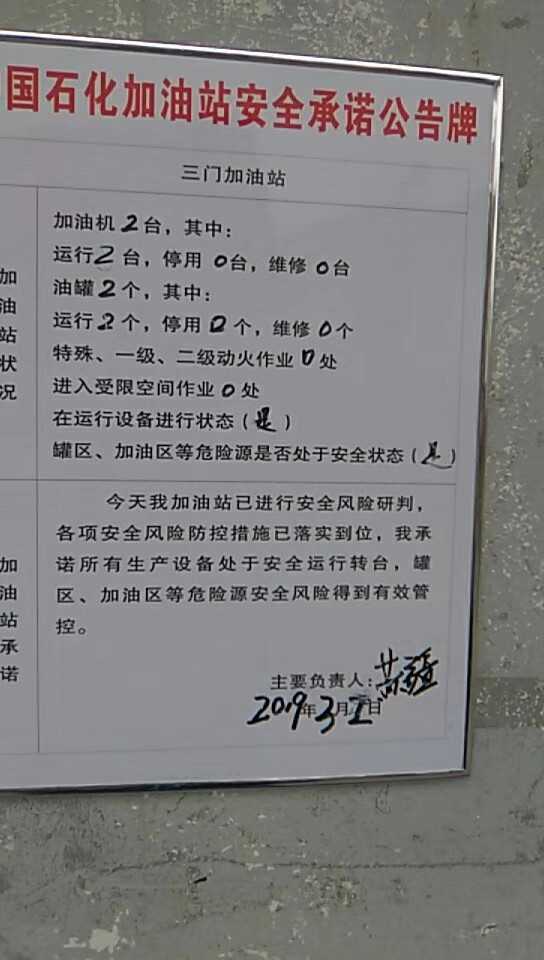 国石化加油站安全承诺公告牌
三门加油站
加油站状况
加油机2台，其中：
运行2台，停用0台，维修0台
油罐2个，其中：
运行2个，停用0个，维修0个
特殊、一级、二级动火作业0处
进入受限空间作业0处
在运行设备进行状态（是）
罐区、加油区等危险源是否处于安全状态（是）
加油站承诺
今天我加油站已进行安全风险研判，
各项安全风险防控措施已落实到位，我承
诺所有生产设备处于安全运行转台，罐
区、加油区等危险源安全风险得到有效管
控。
主要负责人：
2019年3月 日